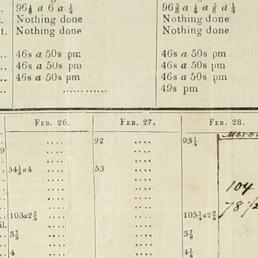 96⅛ a 6 a ¼ 96⅜ a ¼ a ⅜ a ¼
Nothing done Nothing done
t. Nothing done Nothing done
46s a 50s pm 46s a 50s pm
46s a 50s pm 46s a 50s pm
46s a 50s pm 46s a 50s pm
49s pm
FEB. 26. FEB. 27. FEB. 28.
92 93¼
9
54½a4 53
104
103a2¾ 103¼a2¾ 78½
il. 3⅞ 3⅞
4 4